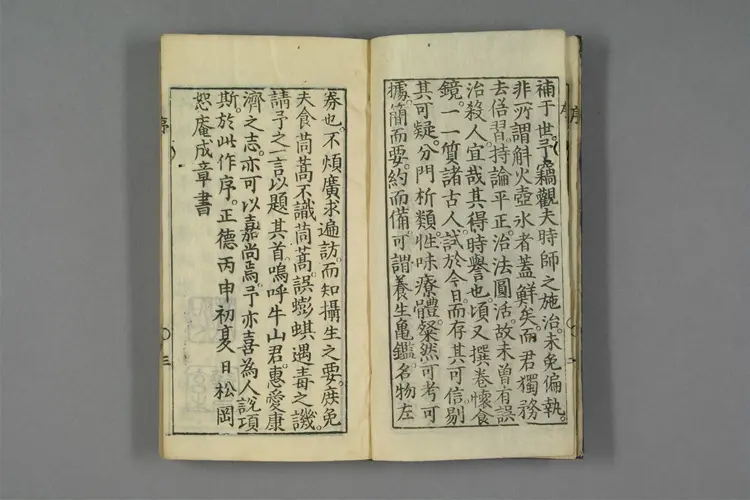 補于世。予竊觀夫時師之施治。未免偏執。
非所謂斛火壺氷者蓋鮮矣。而君獨務
去俗習。持論平正。治法圓活。故未曽有誤
治殺人。宜哉其得時譽也。頃又撰巻懐食
鏡。一一質諸古人。試於今日。而存其可信。剔
其可疑。分門析類。性味療體。粲然可考可
據。簡而要。約而備。可謂養生亀鑑。名物左
券也。不煩廣求遍訪。而知攝生之要。庶免
夫食茼蒿不識茼蒿。誤蟛蜞遇毒之譏。
請予之一言以題其首。嗚呼牛山君。惠愛康
濟之志。亦可以嘉尚焉。予亦喜為人說項
斯。於此作序。正德丙申初夏日松岡
恕庵成章書
序
序
三